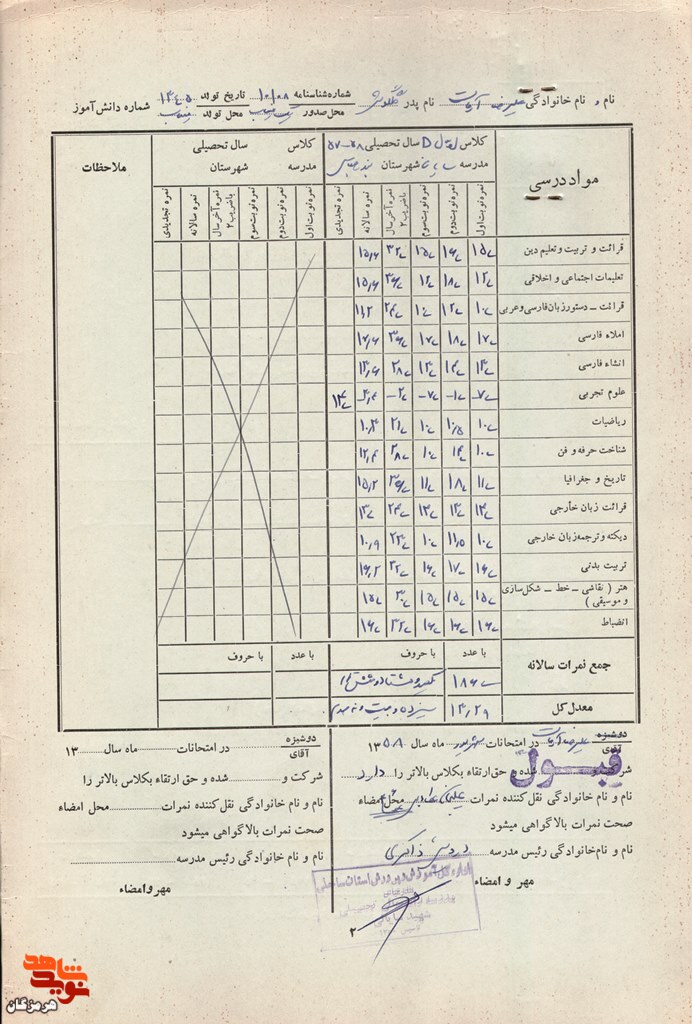 نام و نام خانوادگی علیرضه آرمات نام پدر شماره شناسنامه ۱۰۱۰۸ تاریخ تولد ۱۳۴۵ شماره دانش‌آموز
محل صدور میناب محل تولد میناب
مواد درسی
کلاس اول D سال تحصیلی ۵۸-۵۷
مدرسه شهرستان بندرعباس
نمره نوبت اول
نمره نوبت دوم
نمره نوبت سوم
نمره آخر سال با ضریب ۲
نمره سالانه
نمره تجدیدی
کلاس سال تحصیلی
مدرسه شهرستان
نمره نوبت اول
نمره نوبت دوم
نمره نوبت سوم
نمره آخر سال با ضریب ۲
نمره سالانه
نمره تجدیدی
ملاحظات
قرائت و تربیت و تعلیم دین ۱۵ ۱۶ ۱۵ ۳۲ ۱۵٫۶
تعلیمات اجتماعی و اخلاقی ۱۲ ۱۸ ۱۲ ۳۶ ۱۵٫۶
قرائت ــ دستور زبان فارسی و عربی ۱۰ ۱۲ ۱۰ ۲۴ ۱۱٫۲
املاء فارسی ۱۷ ۱۸ ۱۷ ۳۶ ۱۷٫۶
انشاء فارسی ۱۳ ۱۴ ۱۳ ۲۸ ۱۳٫۶
علوم تجربی ۷ ۱۰ ۷ ۱۳
ریاضیات ۱۰ ۱۰٫۵ ۱۰ ۲۱ ۱۰٫۳
شناخت حرفه و فن ۱۰ ۱۴ ۱۰ ۲۸ ۱۲٫۴
تاریخ و جغرافیا ۱۱ ۱۸ ۱۱ ۳۶ ۱۵٫۲
قرائت زبان خارجی ۱۳ ۱۳ ۱۳ ۱۳
دیکته و ترجمه زبان خارجی ۱۰ ۱۱٫۵ ۱۰ ۲۳ ۱۰٫۹
تربیت بدنی ۱۶ ۱۷ ۱۶ ۳۲ ۱۶٫۲
هنر ( نقاشی ــ خط ــ شکل‌سازی و موسیقی ) ۱۵ ۱۵ ۱۵ ۳۰ ۱۵
انضباط ۱۶ ۱۶ ۱۶ ۳۲ ۱۶
با عدد با حروف با عدد با حروف
جمع نمرات سالانه ۱۸۶ یکصد و هشتاد و شش
معدل کل ۱۳٫۲۹ سیزده و بیست و نه صدم
دوشیزه
آقای علیرضه آرمات در امتحانات شهریور ماه سال ۱۳۵۸
شرکت و قبول شده و حق ارتقاء بکلاس بالاتر را دارد
نام و نام خانوادگی نقل کننده نمرات محل امضاء
صحت نمرات بالا گواهی میشود
نام و نام خانوادگی رئیس مدرسه درویش ذاکری
مهر و امضاء
دوشیزه
آقای در امتحانات ماه سال ۱۳
شرکت و شده و حق ارتقاء بکلاس بالاتر را
نام و نام خانوادگی نقل کننده نمرات محل امضاء
صحت نمرات بالا گواهی میشود
نام و نام خانوادگی رئیس مدرسه
مهر و امضاء
اداره کل آموزش و پرورش استان ساحلی
۲
نوید شاهد
هرمزگان